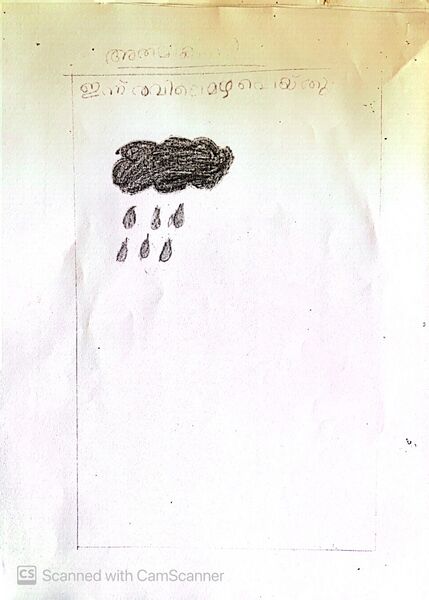 ഇന്ന് രവിലെമഴ പെയ്തു.
CS Scanned with CamScanner